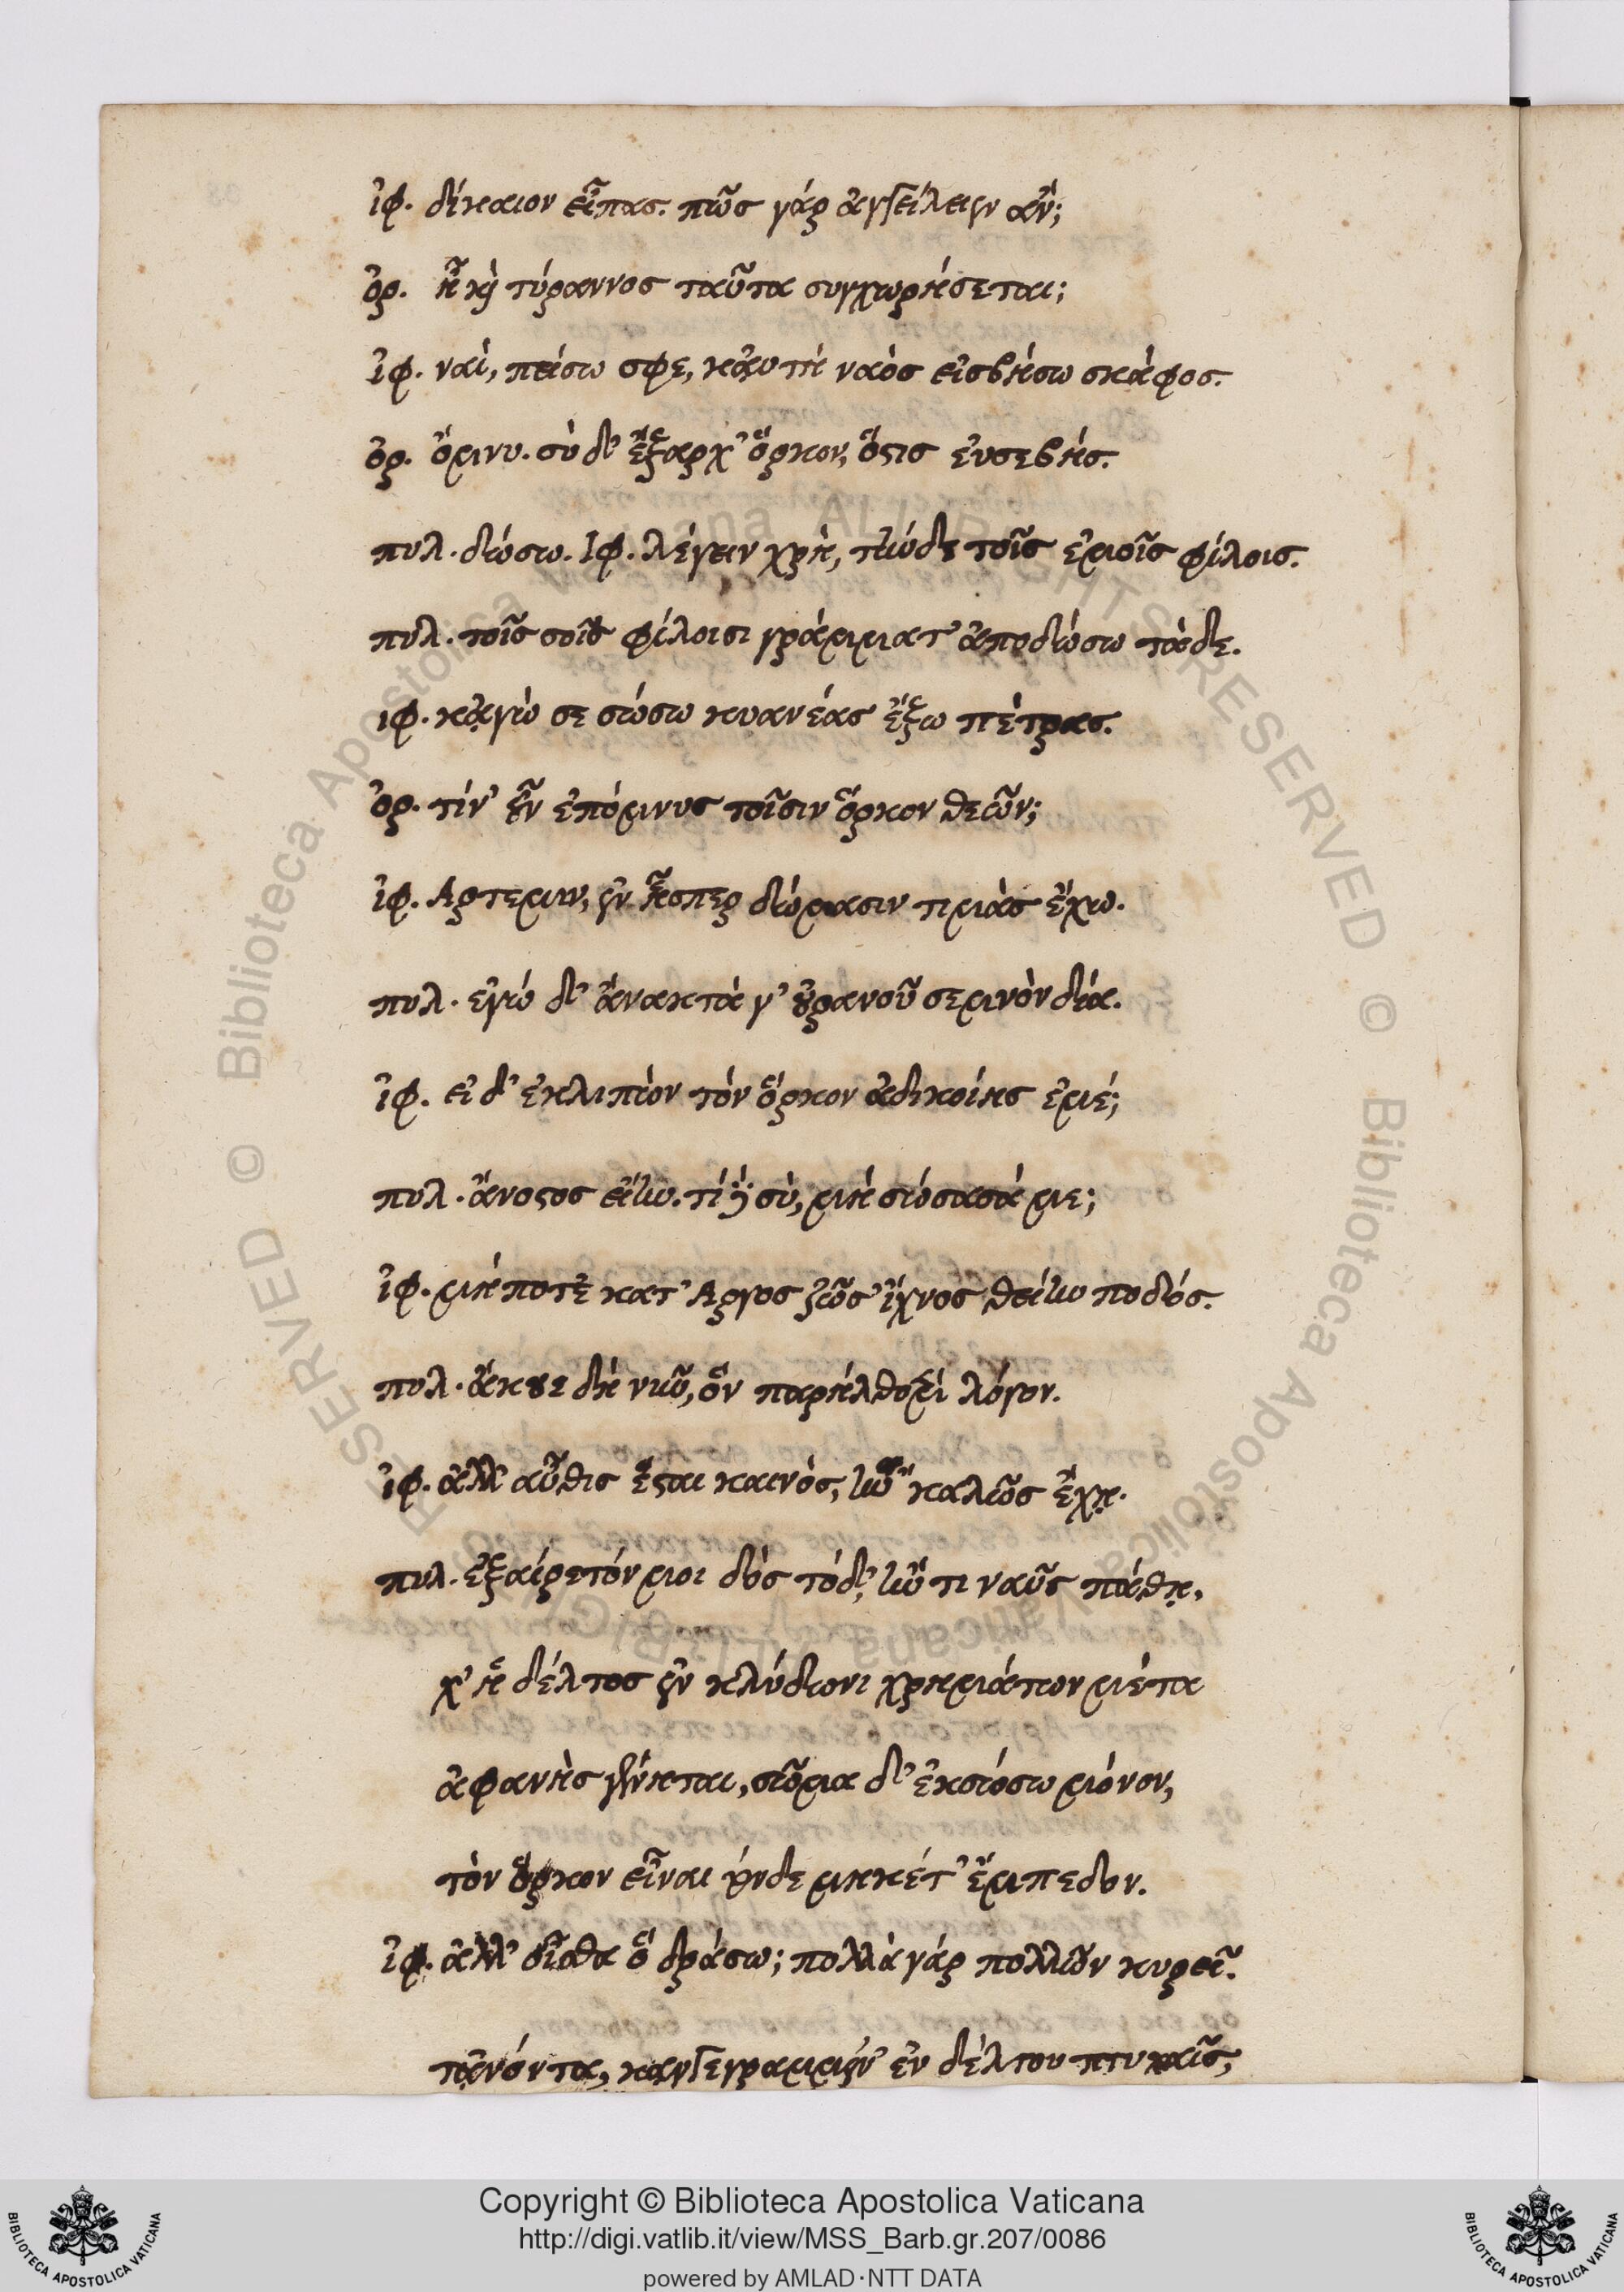 ἰφ. δίκαιον εἶπας. πῶς γάρ ἀγγείλειεν ἄν;
ὀρ. ἦ καὶ τύραννος ταῦτα συγχωρήσεται;
ἰφ. ναὶ, πείσω σφε, κᾀυτὴ ναὸς εἰσβήσω σκάφος.
ὀρ. ὄμνυ. σὺ δ' ἔξαρχ' ὅρκον, ὅστις ἐυσεβής.
πυλ. δώσω. Ιφ. λέγειν χρὴ, τήνδε τοῖς ἐμοῖς φίλοις.
πυλ. τοῖς σοῖς φίλοισι γράμματ' ἀποδώσω τάδε.
ιφ. κᾀγὼ σε σώσω κυανέας ἔξω πέτρας.
ὀρ. τίν' οὖν ἐπόμνυς τοῖσιν ὅρκον θεῶν;
ἰφ. Αρτεμιν, ἐν ἧσπερ δώμασιν τιμὰς ἔχω.
πυλ. ἐγώ δ' ἄνακτά γ' οὐρανοῦ σεμνὸν δία.
ἰφ. εἰ δ' ἐκλιπὼν τὸν ὅρκον ἀδικοίης ἐμέ;
πυλ. ἄνοστος εἴην. τί δὲ σὺ, μὴ σώσασά με;
ἰφ. μήποτε κατ' Αργος ζῶσ' ἴχνος θείην ποδός.
πυλ. ἄκουε δὴ νῦν, ὅν παρήλθομεν λόγον.
ἰφ. ἀλλ' αὖθις ἔσται καινὸς, ἢν καλῶς ἔχῃ.
πυλ. ἐξαίρετόν μοι δὸς τόδ', ἤν τι ναῦς πάθῃ,
χ' ἡ δέλτος ἐν κλύδωνι χρημάτων μέτα
ἀφανὴς γένηται, σῶμα δ' ἐκσώσω μόνον,
τὸν ὅρκον εἶναι τόνδε μηκέτ' ἔμπεδον.
ἰφ. ἀλλ' οἶσθα ὅ δράσω; πολλὰ γάρ πολλῶν κυρεῖ.
τᾀνόντα, κᾀγγεγραμμέν' ἐν δέλτου πτυχαῖς,
Copyright © Biblioteca Apostolica Vaticana
http://digi.vatlib.it/view/MSS_Barb.gr.207/0086
powered by AMLAD·NTT DATA